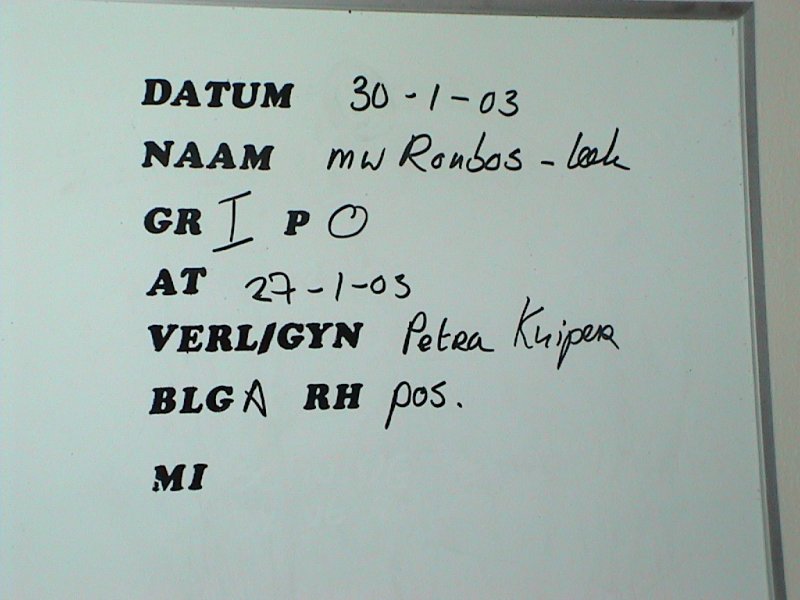 DATUM 30-1-03
NAAM mw Roubos - Leek
GR I P O
AT 27-1-03
VERL/GYN Petra Kuiper
BLG A RH pos.
MI